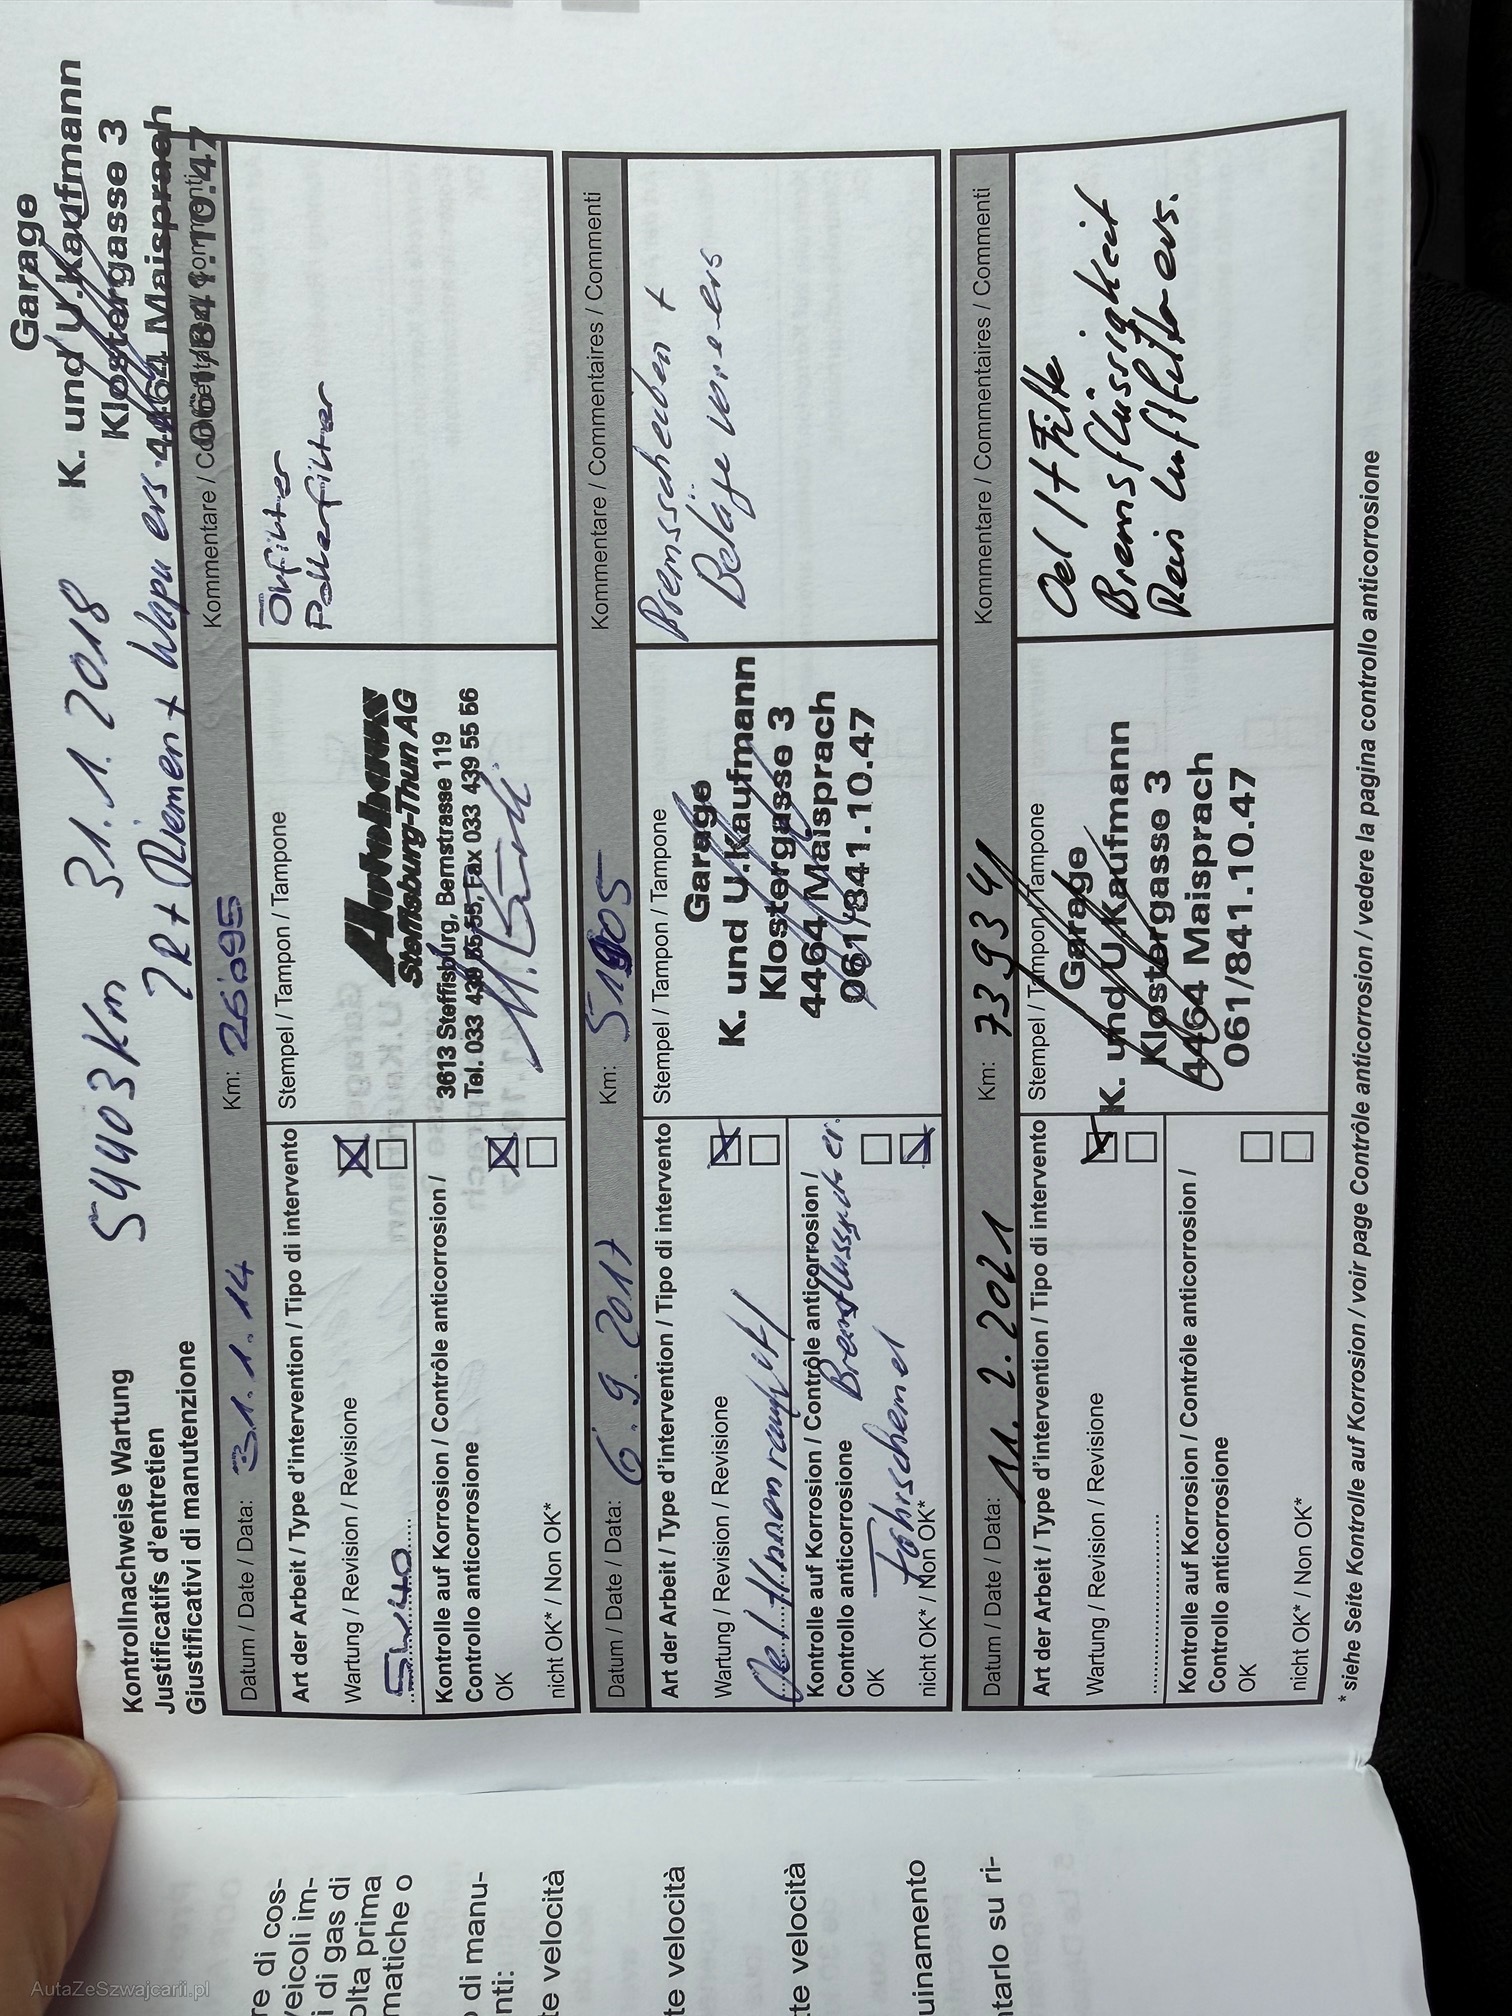 Garage
K. und U. Kaufmann
Klostergasse 3
4464 Maisprach
061/841.10.47
54403 Km 31.1.2018
ZR + Riemen + Wapu ers.
Kontrollnachweise Wartung
Justificatifs d'entretien
Giustificativi di manutenzione
Datum / Date / Data: 31.1.14 Km: 26'095 Kommentare /
Art der Arbeit / Type d'intervention / Tipo di intervento
Stempel / Tampon / Tampone
Wartung / Revision / Revisione
5W40
Kontrolle auf Korrosion / Contrôle anticorrosion /
Controllo anticorrosione
OK
nicht OK* / Non OK*
Autohaus
Steffisburg-Thun AG
3613 Steffisburg, Bernstrasse 119
Tel. 033 439 55 55, Fax 033 439 55 66
Ölfilter
Pollenfilter
Datum / Date / Data: 6.9.2017 Km: Kommentare / Commentaires / Commenti
Art der Arbeit / Type d'intervention / Tipo di intervento
Stempel / Tampon / Tampone
Wartung / Revision / Revisione
Kontrolle auf Korrosion / Contrôle anticorrosion /
Controllo anticorrosione
Fahrschemel
OK
nicht OK* / Non OK*
Garage
K. und U. Kaufmann
Klostergasse 3
4464 Maisprach
061/841.10.47
Bremsscheiben +
Beläge vorne ers
Datum / Date / Data: 11.2.2021 Km: 73934 Kommentare / Commentaires / Commenti
Art der Arbeit / Type d'intervention / Tipo di intervento
Stempel / Tampon / Tampone
Wartung / Revision / Revisione
Kontrolle auf Korrosion / Contrôle anticorrosion /
Controllo anticorrosione
OK
nicht OK* / Non OK*
Garage
K. und U. Kaufmann
Klostergasse 3
4464 Maisprach
061/841.10.47
Oel + Filter
Bremsflüssigkeit
Luftfilter ers.
* siehe Seite Kontrolle auf Korrosion / voir page Contrôle anticorrosion / vedere la pagina controllo anticorrosione
re di cos-
veicoli im-
i di gas di
olta prima
matiche o
o di manu-
nti:
te velocità
te velocità
te velocità
uinamento
ntarlo su ri-
AutaZeSzwajcarii.pl